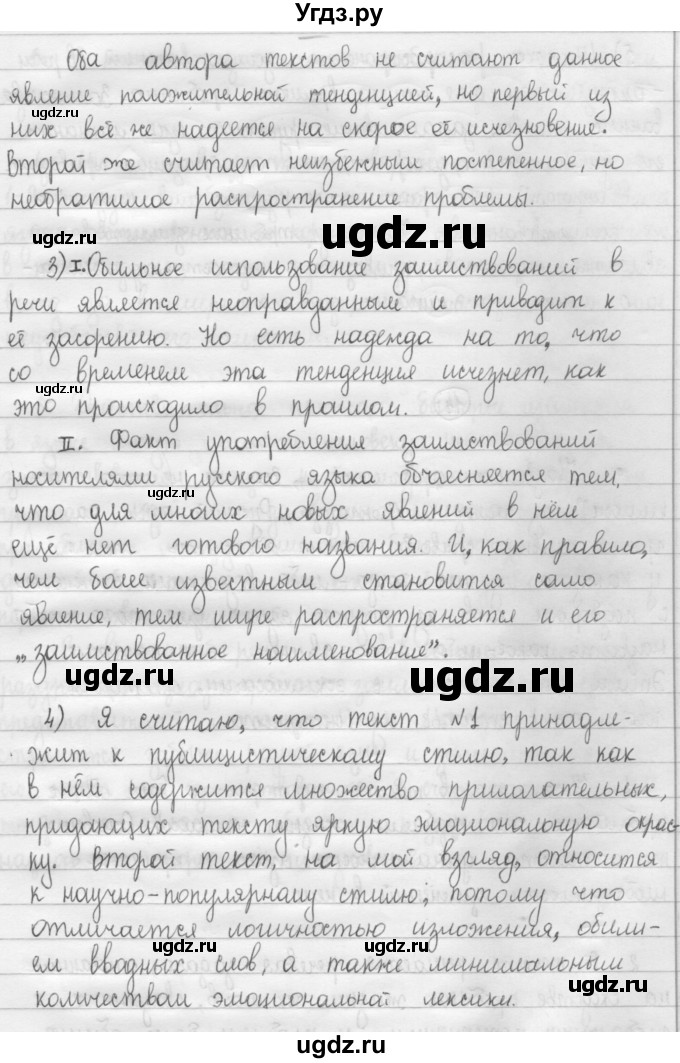 Угдз.ру
Оба автора текстов не считают данное
явление положительной тенденцией, но первый из
них всё же надеется на скорое её исчезновение.
Второй же считает неизбежным постепенное, но
необратимое распространение проблемы.
ugdz.ru
ugdz.ru
3) I. Обильное использование заимствований в
речи является неоправданным и приводит к
её засорению. Но есть надежда на то, что
со временем эта тенденция исчезнет, как
ugdz.ru
это происходило в прошлом.
ugdz.ru
II. Факт употребления заимствований
носителями русского языка объясняется тем,
ugdz.ru
что для многих новых явлений в нём
ещё нет готового названия. И, как правило,
чем более известным становится само
явление, тем шире распространяется и его
„заимствованное наименование".
ugdz.ru
ugdz.ru
4) Я считаю, что текст №1 принадле-
жит к публицистическому стилю, так как
в нём содержится множество прилагательных,
придающих тексту яркую эмоциональную окрас-
ugdz.ru
ку. Второй текст, на мой взгляд, относится
к научно-популярному стилю, потому что
отличается логичностью изложения, обили-
ugdz.ru
ем вводных слов, а также минимальным
количеством эмоциональной лексики.
ugdz.ru
ugdz.ru